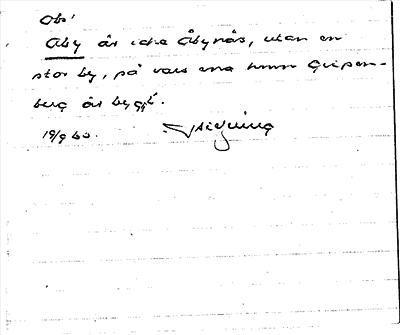 Obs!
Åby är icke Åbynäs, utan en
stor by, på vars ena hemman Gripen-
berg är byggt.
19/9 60.